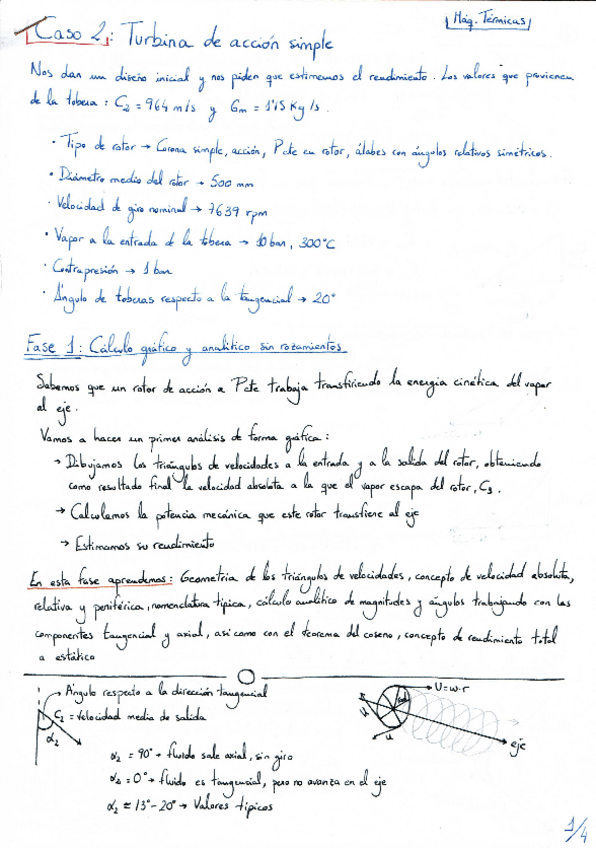 Máq. Térmicas
Caso 2: Turbina de acción simple
Nos dan un diseño inicial y nos piden que estimemos el rendimiento. Los valores que provienen
de la tobera: C₂ = 964 m/s y Gm = 1'15 Kg/s.
· Tipo de rotor → Corona simple, acción, Pcte en rotor, álabes con ángulos relativos simétricos.
· Diámetro medio del rotor → 500 mm
· Velocidad de giro nominal → 7639 rpm
· Vapor a la entrada de la tobera → 10 bar, 300°C
· Contrapresión → 1 bar
· Ángulo de toberas respecto a la tangencial → 20°
Fase 1: Cálculo gráfico y analítico sin rozamientos
Sabemos que un rotor de acción a Pcte trabaja transfiriendo la energía cinética del vapor
al eje.
Vamos a hacer un primer análisis de forma gráfica:
→ Dibujamos los triángulos de velocidades a la entrada y a la salida del rotor, obteniendo
como resultado final la velocidad absoluta a la que el vapor escapa del rotor, C₃.
→ Calculamos la potencia mecánica que este rotor transfiere al eje
→ Estimamos su rendimiento
En esta fase aprendemos: Geometría de los triángulos de velocidades, concepto de velocidad absoluta,
relativa y periférica, nomenclatura típica, cálculo analítico de magnitudes y ángulos trabajando con las
componentes tangencial y axial, así como con el teorema del coseno, concepto de rendimiento total
a estático
→ Ángulo respecto a la dirección tangencial
C₂ = Velocidad media de salida
α₂
U = w·r
U
u
eje
α₂ = 90° → fluido sale axial, sin giro
α₂ = 0° → fluido es tangencial, pero no avanza en el eje
α₂ ≈ 13° - 20° → Valores típicos
1/4